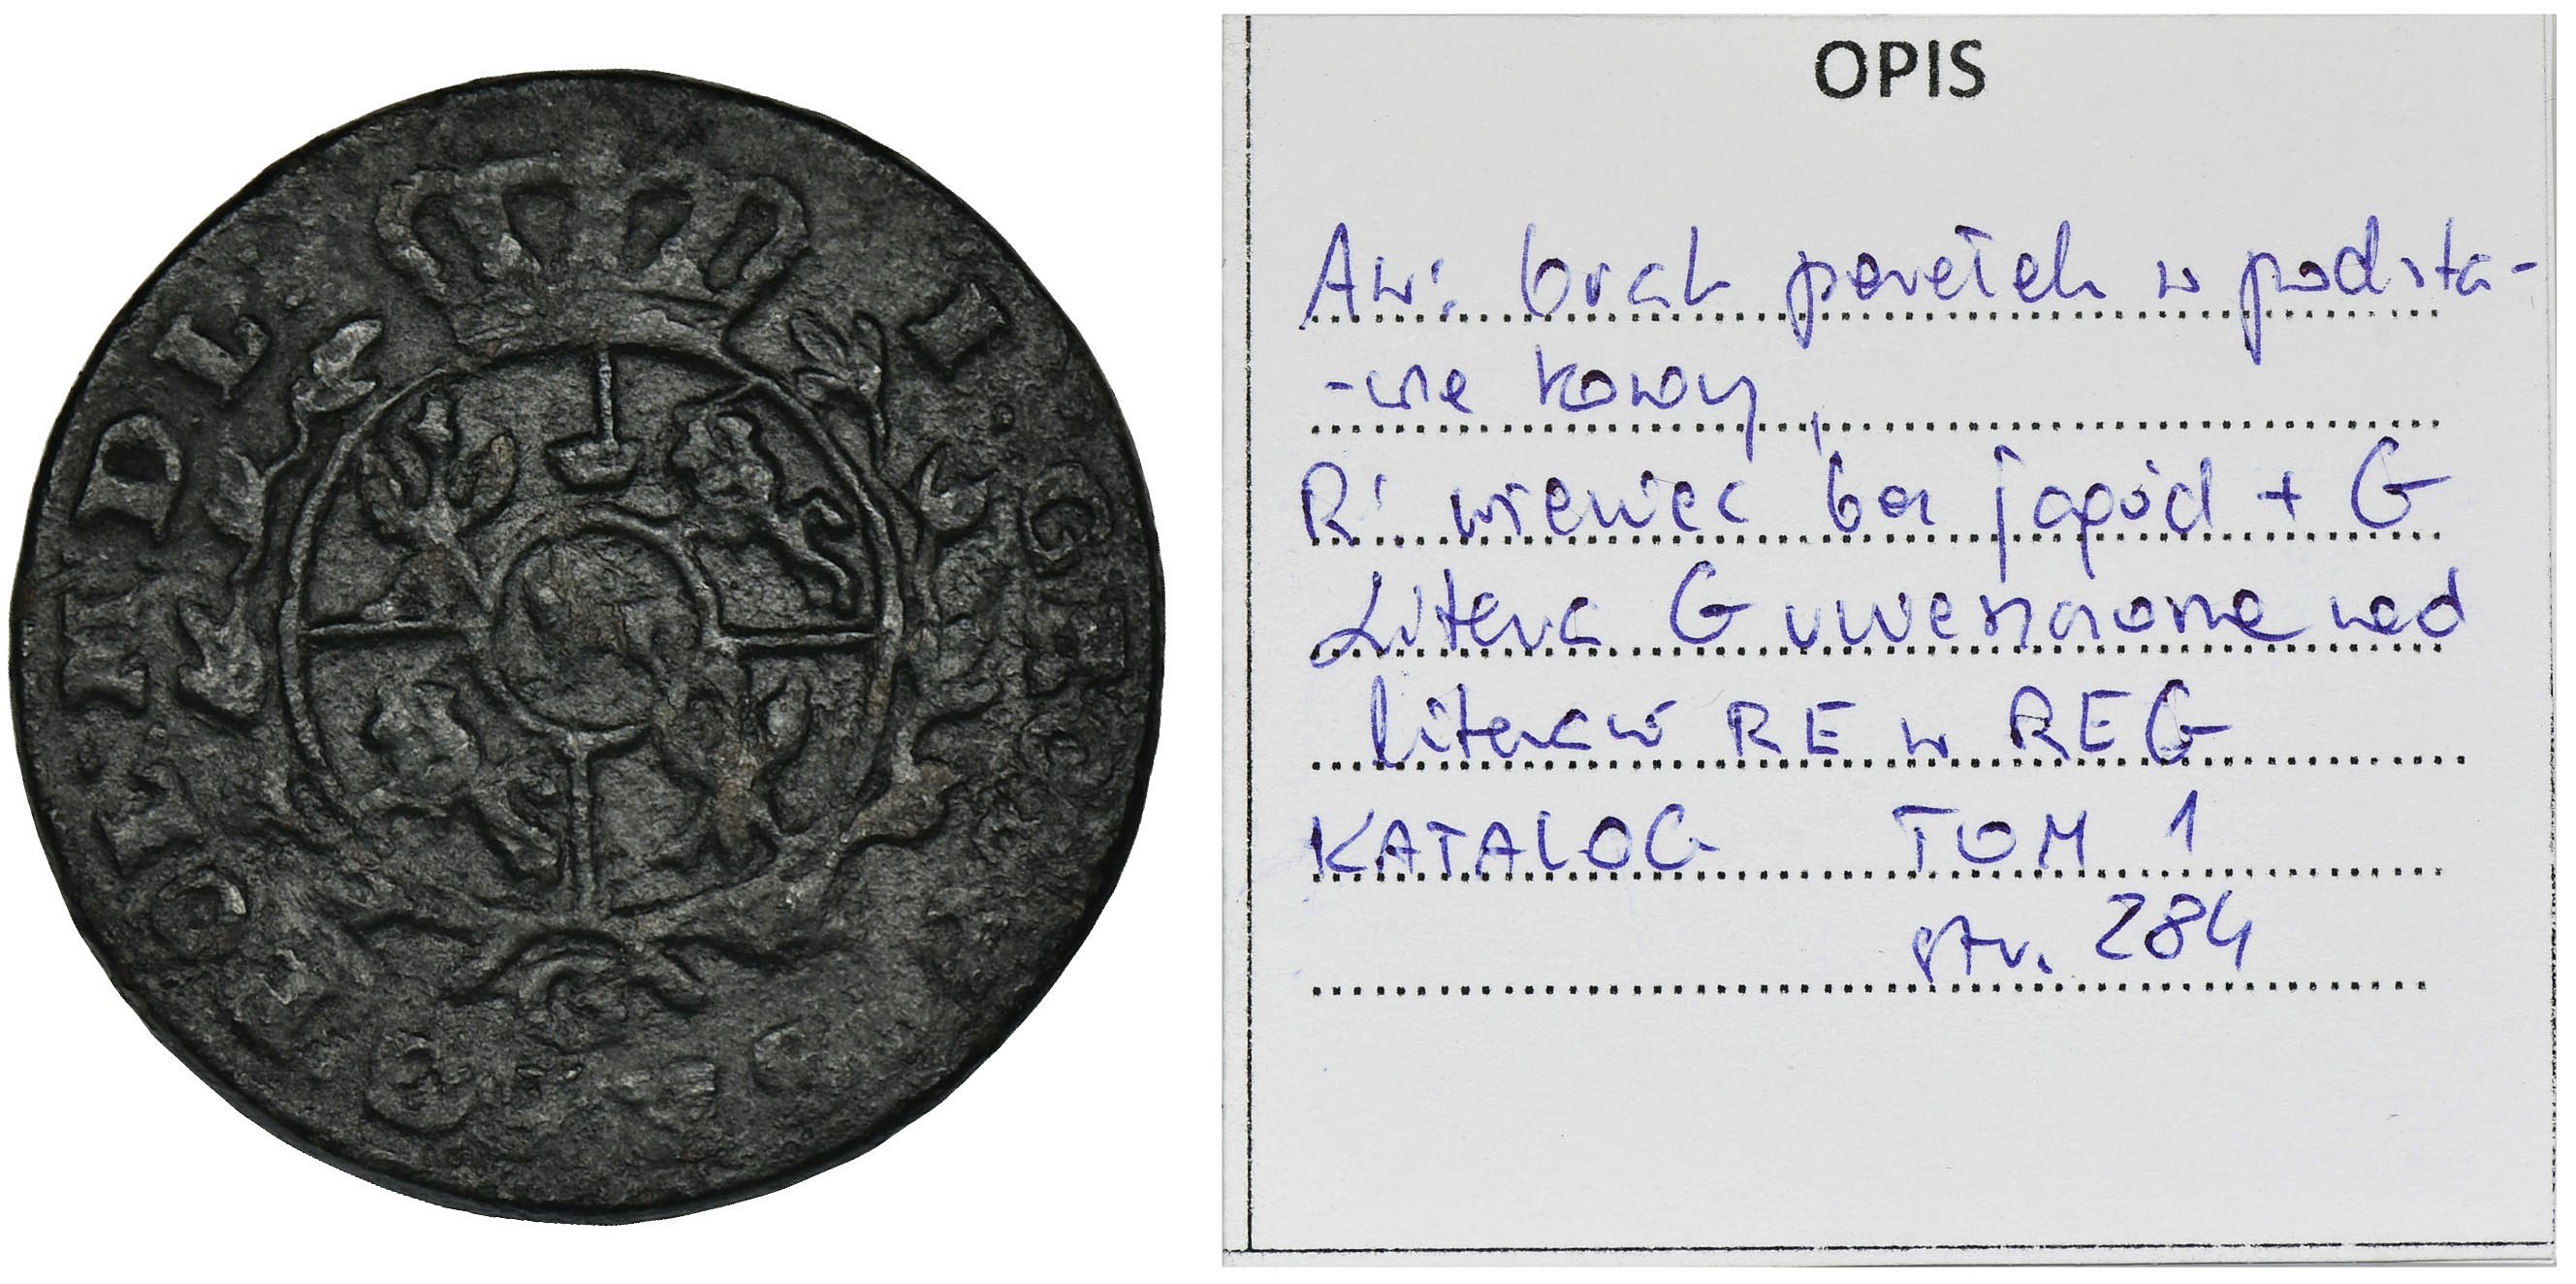 I · G
POL · M · D · L ·
OPIS
Aw: brak perełek w podsta-
-wie korony,
R: wieniec bez jagód + G
Litera G umieszczona nad
literami RE w REG
KATALOG TOM 1
str. 284